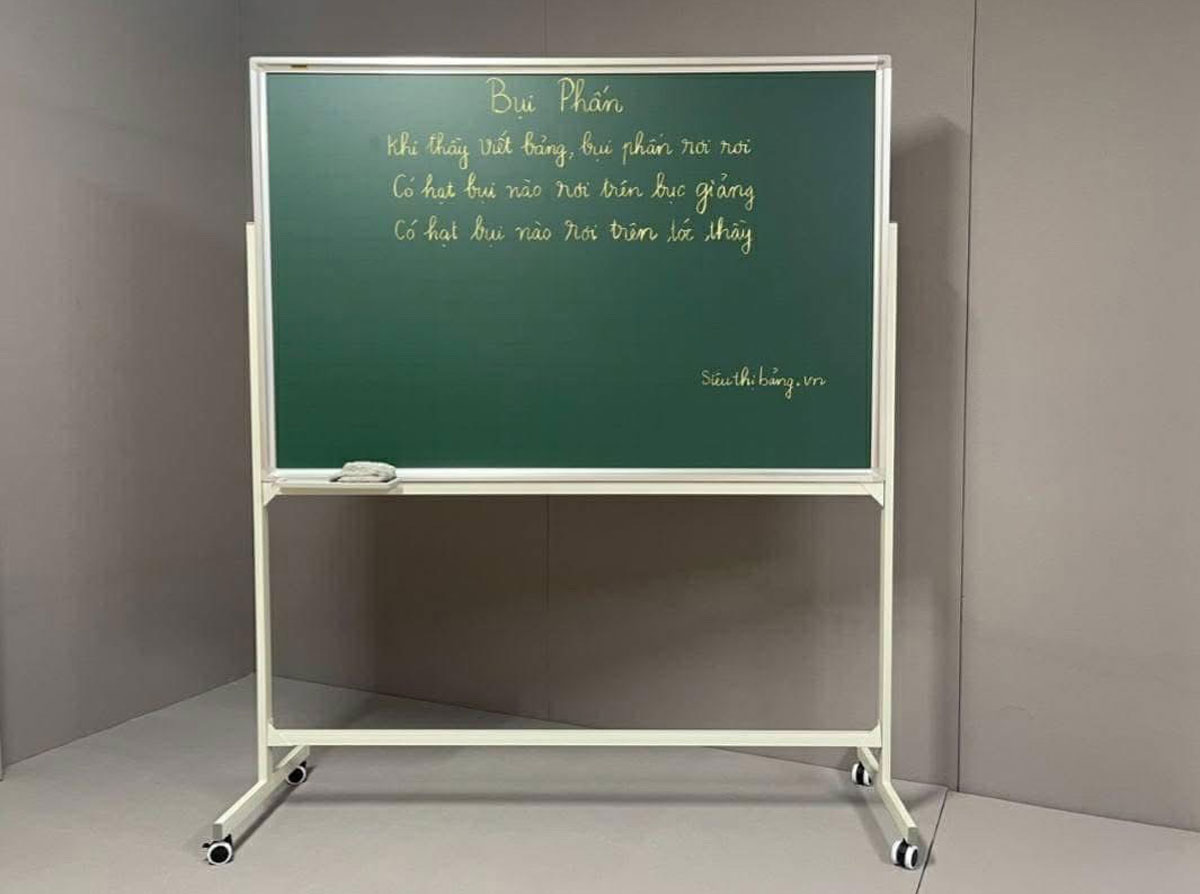 Bụi Phấn
Khi thầy viết bảng, bụi phấn rơi rơi
Có hạt bụi nào rơi trên bục giảng
Có hạt bụi nào rơi trên tóc thầy
Siêuthịbảng.vn